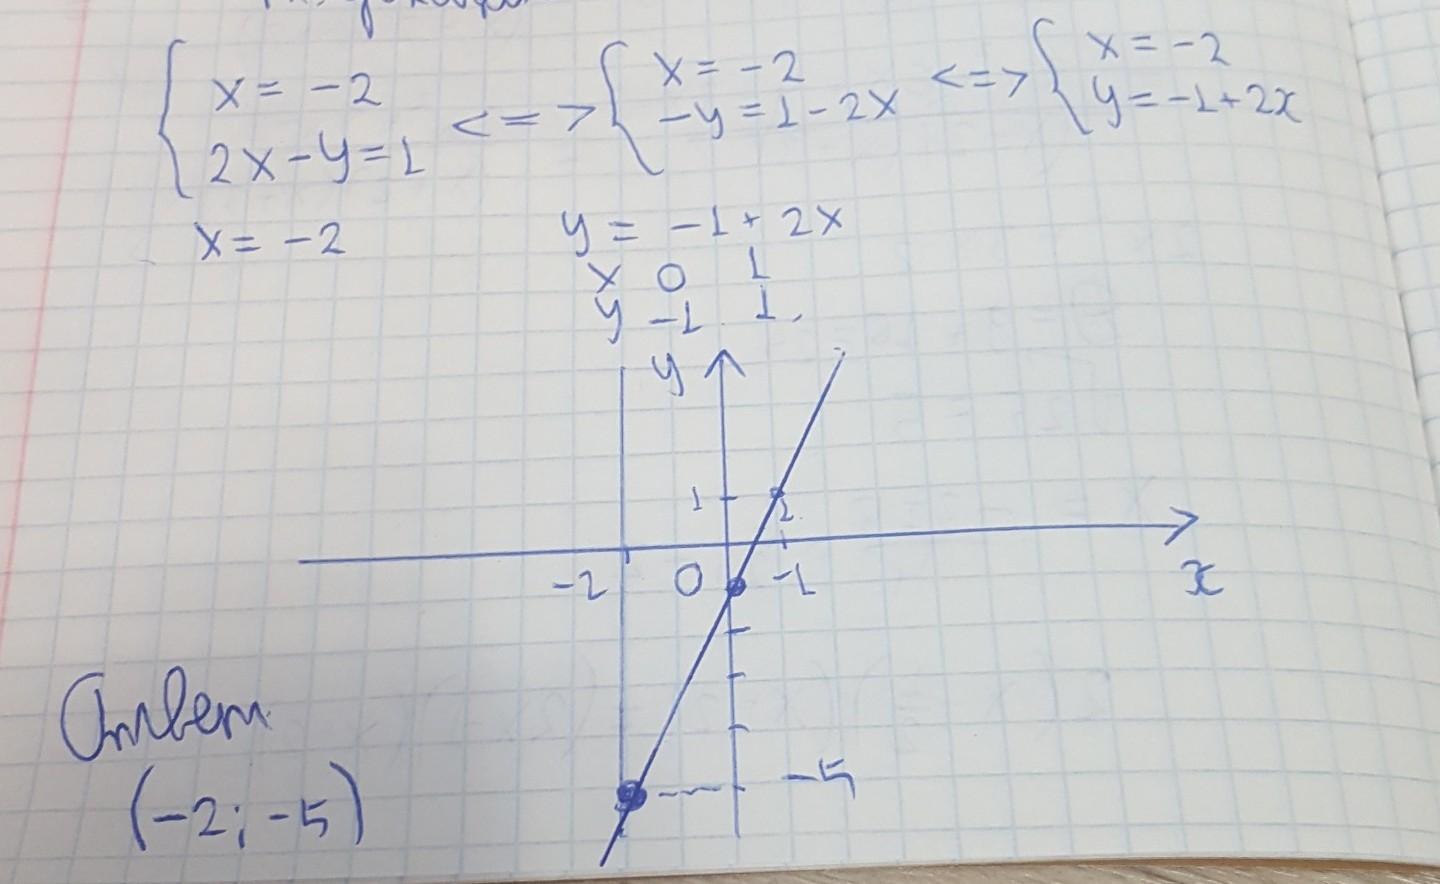 { x = -2 <=> { x = -2 <=> { x = -2
2x - y = 1 -y = 1 - 2x y = -1 + 2x
x = -2 y = -1 + 2x
x 0 1
y -1 1
y
1 2
-2 0 -1 x
-5
Ответ
(-2; -5)